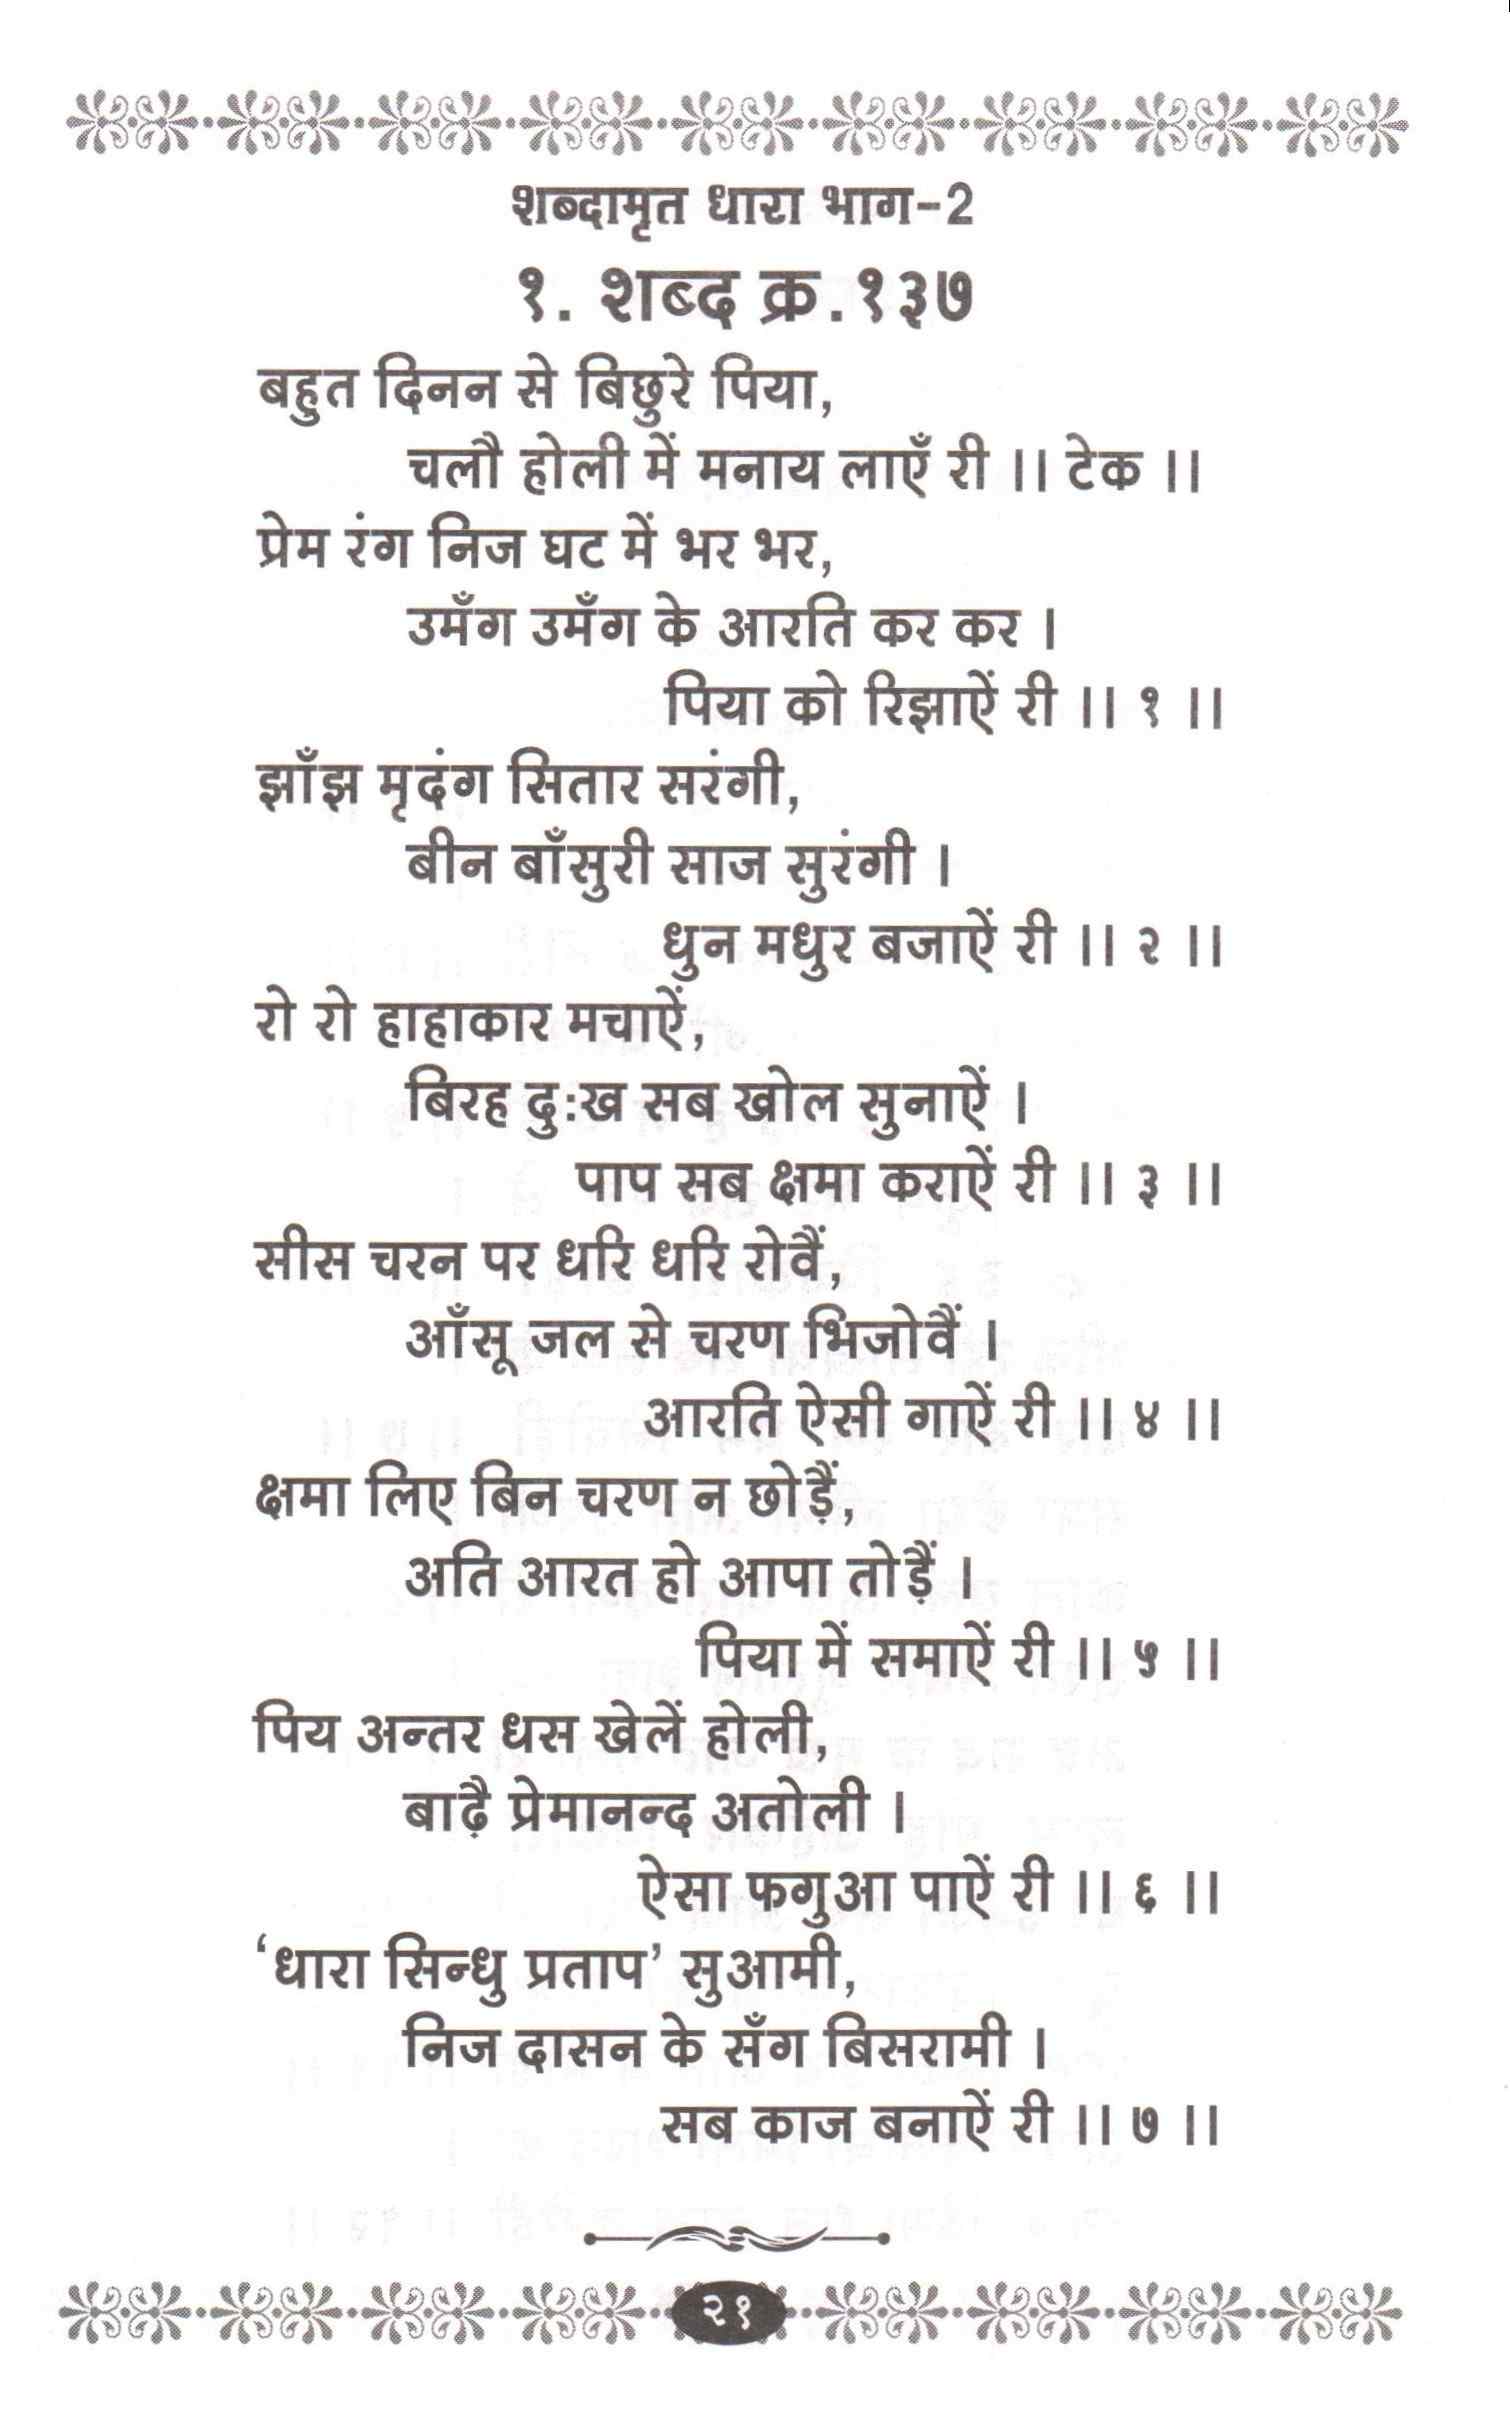 शब्दामृत धारा भाग-2
१. शब्द क्र.१३७
बहुत दिनन से बिछुरे पिया,
चलौ होली में मनाय लाएँ री ।। टेक ।।
प्रेम रंग निज घट में भर भर,
उमँग उमँग के आरति कर कर ।
पिया को रिझाऐं री ।। १ ।।
झाँझ मृदंग सितार सरंगी,
बीन बाँसुरी साज सुरंगी ।
धुन मधुर बजाऐं री ।। २ ।।
रो रो हाहाकार मचाऐं,
बिरह दुःख सब खोल सुनाऐं ।
पाप सब क्षमा कराऐं री ।। ३ ।।
सीस चरन पर धरि धरि रोवैं,
आँसू जल से चरण भिजोवैं ।
आरति ऐसी गाऐं री ।। ४ ।।
क्षमा लिए बिन चरण न छोड़ैं,
अति आरत हो आपा तोड़ैं ।
पिया में समाऐं री ।। ५ ।।
पिय अन्तर धस खेलें होली,
बाढ़ै प्रेमानन्द अतोली ।
ऐसा फगुआ पाऐं री ।। ६ ।।
‘धारा सिन्धु प्रताप’ सुआमी,
निज दासन के सँग बिसरामी ।
सब काज बनाऐं री ।। ७ ।।
२१